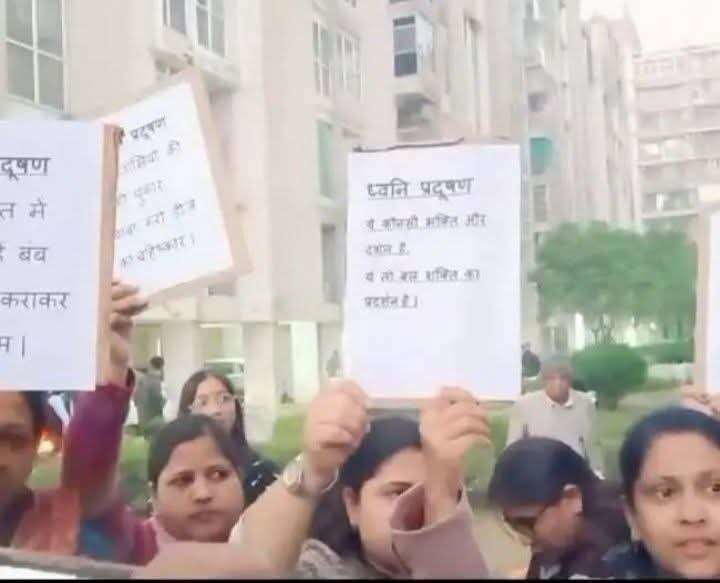 दूषण
त में
है बंब
कराकर
म|
प्रदूषण
की
पुकार
डीजे
का बहिष्कार।
ध्वनि प्रदूषण
ये कौनसी भक्ति और
दर्शन है,
ये तो बस शक्ति का
प्रदर्शन है।